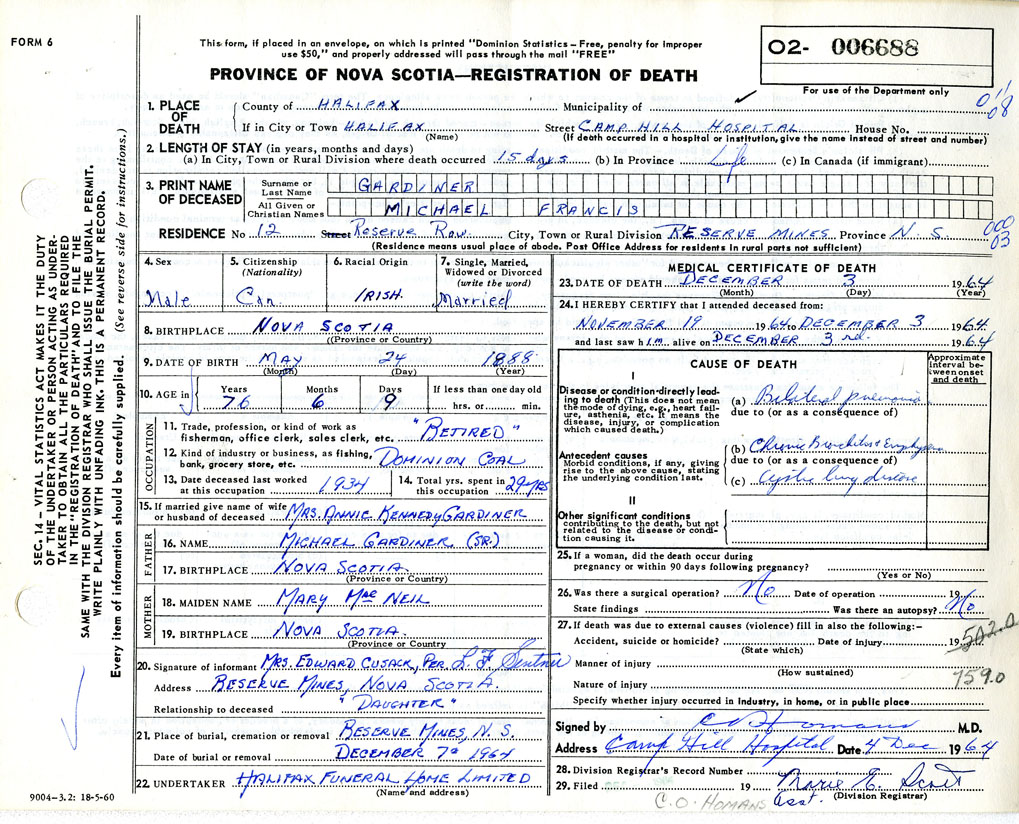 FORM 6
This form, if placed in an envelope, on which is printed "Dominion Statistics – Free, penalty for improper
use $50," and properly addressed will pass through the mail "FREE"
PROVINCE OF NOVA SCOTIA—REGISTRATION OF DEATH
O2- 006688
For use of the Department only
011
08
SEC. 14 – VITAL STATISTICS ACT MAKES IT THE DUTY
OF THE UNDERTAKER OR PERSON ACTING AS UNDER-
TAKER TO OBTAIN ALL THE PARTICULARS REQUIRED
IN THE "REGISTRATION OF DEATH" AND TO FILE THE
SAME WITH THE DIVISION REGISTRAR WHO SHALL ISSUE THE BURIAL PERMIT.
WRITE PLAINLY WITH UNFADING INK. THIS IS A PERMANENT RECORD.
Every item of information should be carefully supplied. (See reverse side for instructions.)
1. PLACE OF DEATH
County of HALIFAX Municipality of
If in City or Town HALIFAX Street CAMP HILL HOSPITAL House No.
(Name) (If death occurred in a hospital or institution, give the name instead of street and number)
2. LENGTH OF STAY (in years, months and days)
(a) In City, Town or Rural Division where death occurred 15 days (b) In Province Life (c) In Canada (if immigrant)
3. PRINT NAME OF DECEASED
Surname or Last Name GARDINER
All Given or Christian Names MICHAEL FRANCIS
RESIDENCE No 12 Street Reserve Row City, Town or Rural Division RESERVE MINES Province N.S.
000
03
(Residence means usual place of abode. Post Office Address for residents in rural parts not sufficient)
4. Sex
Male
5. Citizenship (Nationality)
Can.
6. Racial Origin
IRISH.
7. Single, Married, Widowed or Divorced (write the word)
Married
8. BIRTHPLACE NOVA SCOTIA
(Province or Country)
9. DATE OF BIRTH MAY 24 1888
(Month) (Day) (Year)
10. AGE in
Years 76
Months 6
Days 9
If less than one day old
hrs. or min.
OCCUPATION
11. Trade, profession, or kind of work as
fisherman, office clerk, sales clerk, etc. "RETIRED"
12. Kind of industry or business, as fishing,
bank, grocery store, etc. DOMINION COAL
13. Date deceased last worked at this occupation 1934
14. Total yrs. spent in this occupation 29 yrs
15. If married give name of wife
or husband of deceased MRS. ANNIE KENNEDY GARDINER
FATHER
16. NAME MICHAEL GARDINER (SR.)
17. BIRTHPLACE NOVA SCOTIA.
(Province or Country)
MOTHER
18. MAIDEN NAME MARY MacNEIL
19. BIRTHPLACE NOVA SCOTIA.
(Province or Country
20. Signature of informant MRS. EDWARD CUSACK, PER L. F.
Address RESERVE MINES, NOVA SCOTIA.
Relationship to deceased "DAUGHTER"
21. Place of burial, cremation or removal RESERVE MINES, N.S.
Date of burial or removal DECEMBER 7th 1964
22. UNDERTAKER HALIFAX FUNERAL HOME LIMITED
(Name and address)
9004-3.2: 18-5-60
MEDICAL CERTIFICATE OF DEATH
23. DATE OF DEATH DECEMBER 3 1964
(Month) (Day) (Year)
24. I HEREBY CERTIFY that I attended deceased from:
NOVEMBER 19 1964 to DECEMBER 3 1964
and last saw him. alive on DECEMBER 3rd. 1964
CAUSE OF DEATH
Approximate interval between onset and death
I
Disease or condition directly lead-
ing to death (This does not mean
the mode of dying, e.g., heart fail-
ure, asthenia, etc. It means the
disease, injury, or complication
which caused death.)
(a) Bilateral pneumonia
due to (or as a consequence of)
Antecedent causes
Morbid conditions, if any, giving
rise to the above cause, stating
the underlying condition last.
(b) Chronic Bronchitis & Emphysema
due to (or as a consequence of)
(c) Cystic lung disease
II
Other significant conditions
contributing to the death, but not
related to the disease or condi-
tion causing it.
25. If a woman, did the death occur during
pregnancy or within 90 days following pregnancy?
(Yes or No)
26. Was there a surgical operation? No Date of operation 19
State findings Was there an autopsy? No
27. If death was due to external causes (violence) fill in also the following:–
Accident, suicide or homicide? Date of injury 19
(State which)
502.0
Manner of injury
(How sustained)
759.0
Nature of injury
Specify whether injury occurred in industry, in home, or in public place
Signed by C O Homans M.D.
Address Camp Hill Hospital Date 4 Dec 1964
28. Division Registrar's Record Number
29. Filed 19 Marie E. Scott
C.O. HOMANS Asst. (Division Registrar)